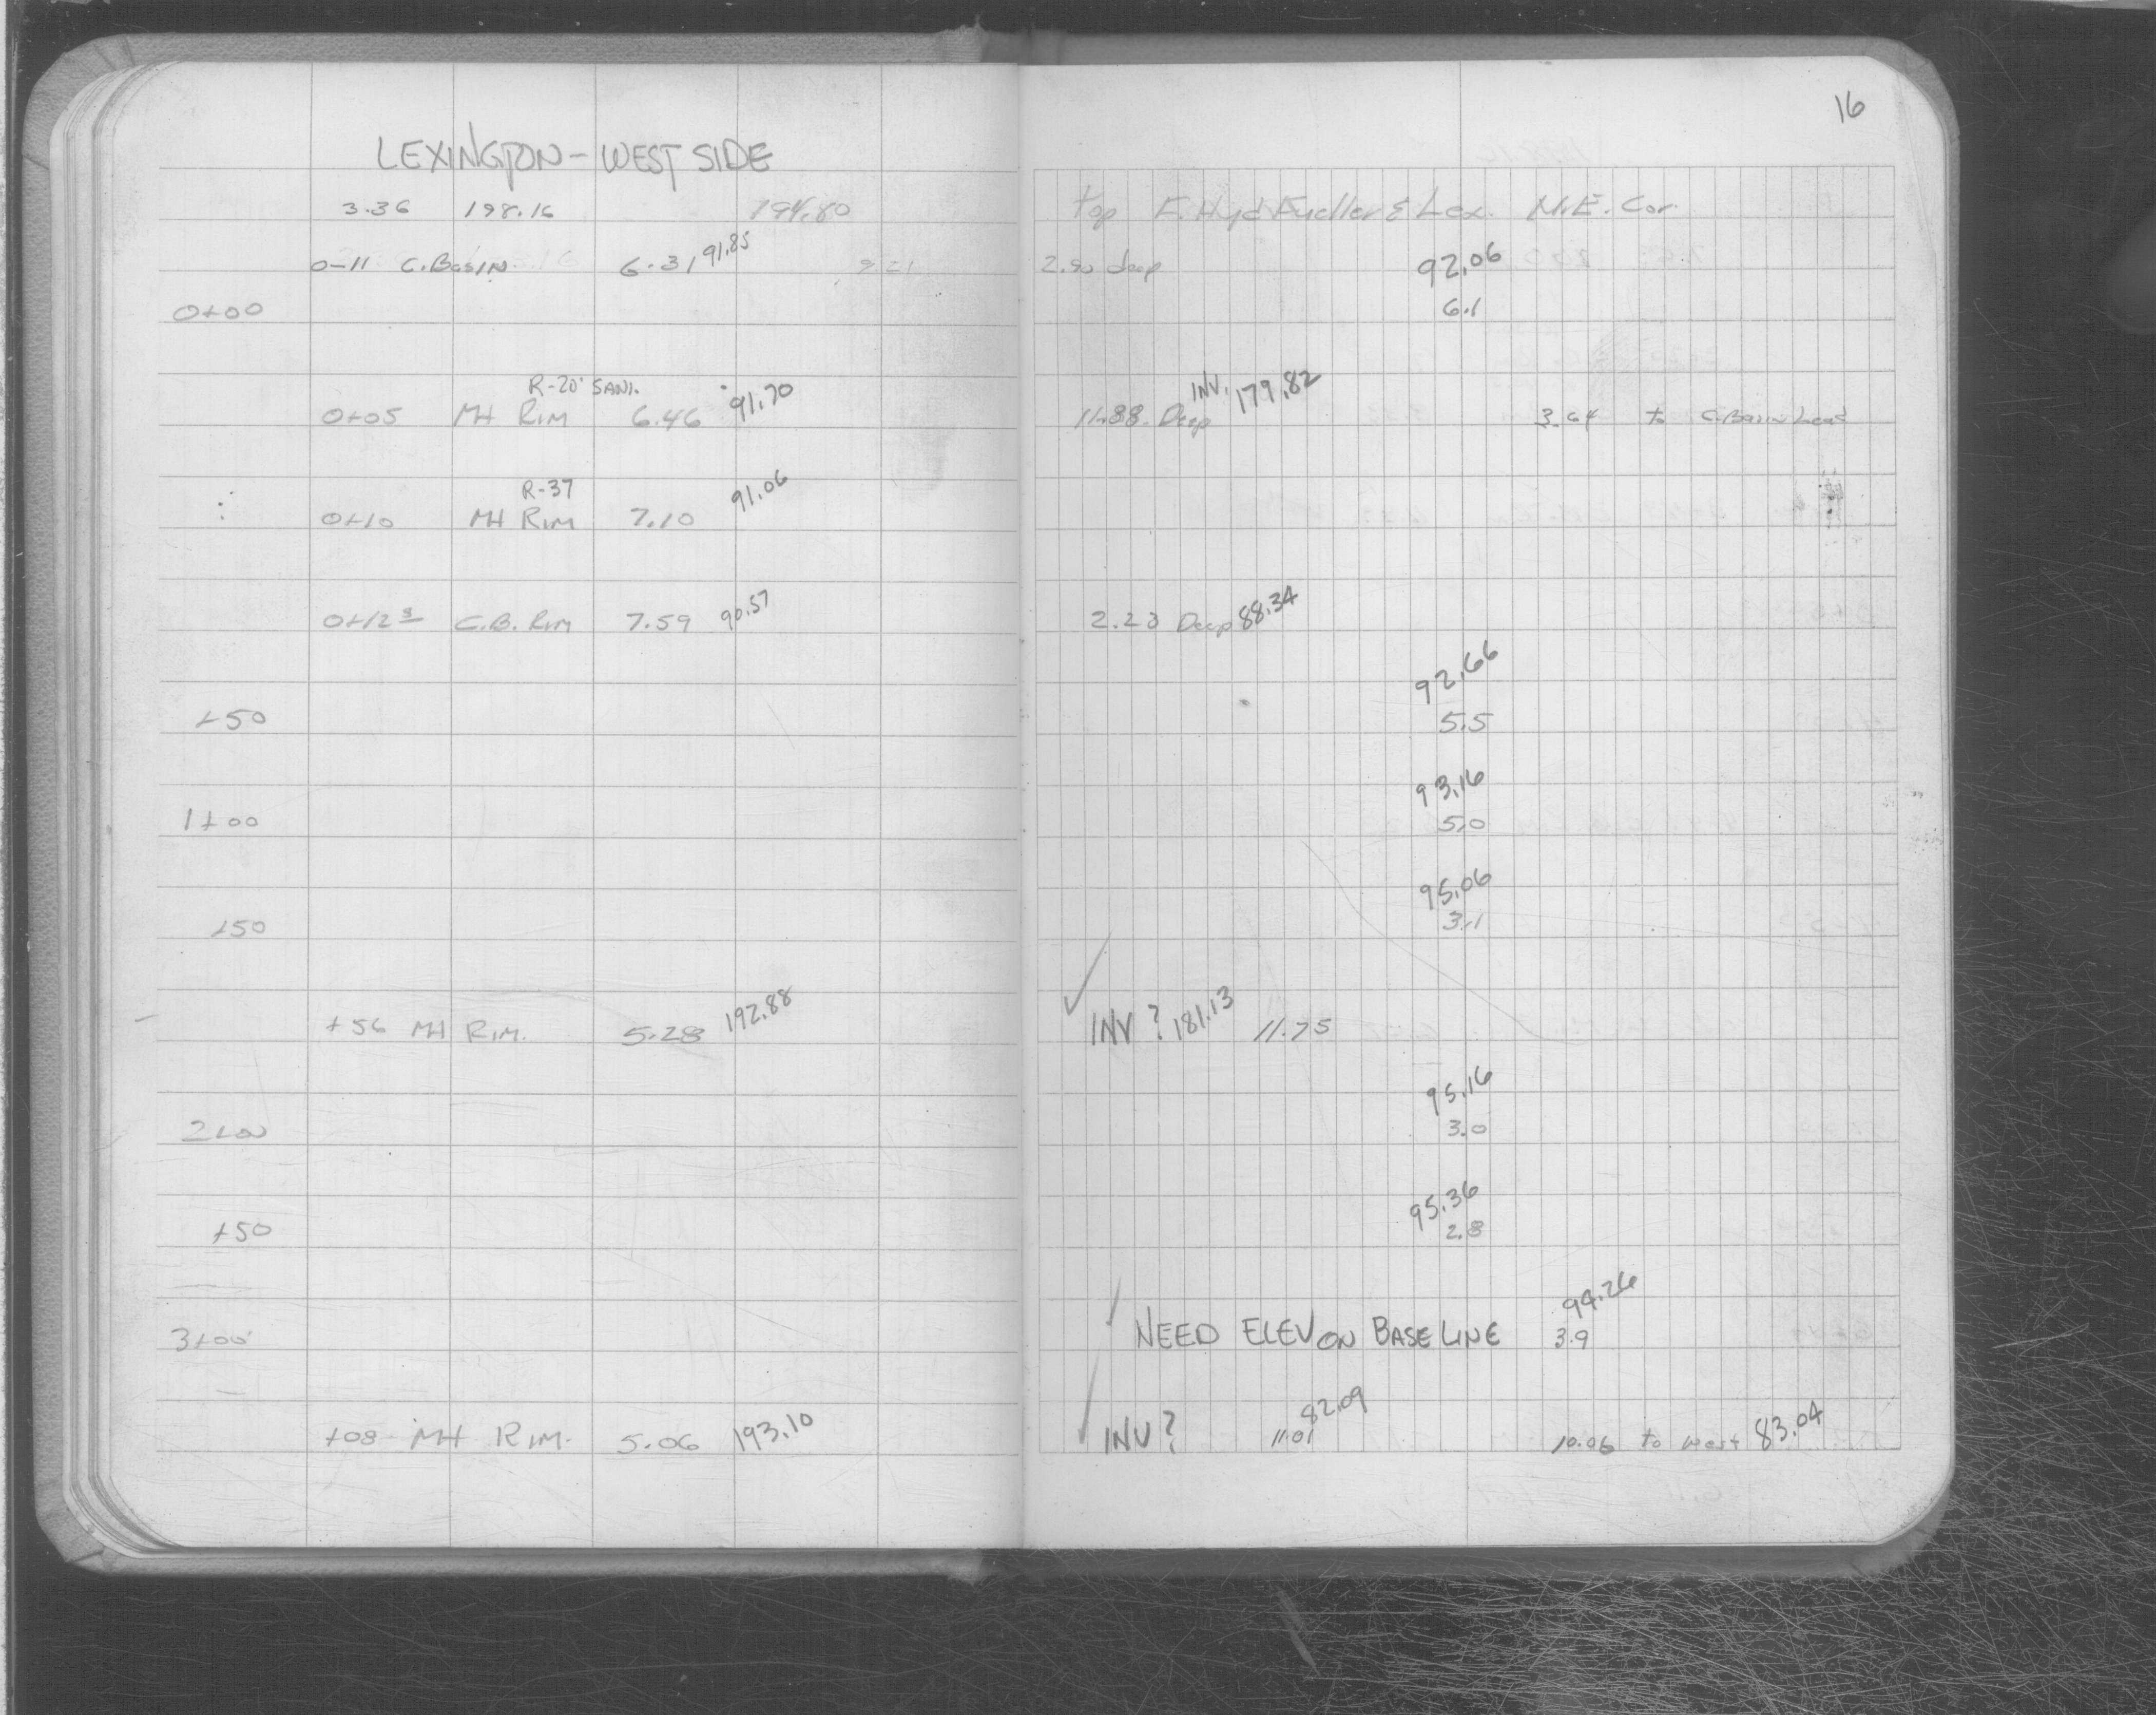 16
LEXINGTON - WEST SIDE
3.36 198.16 194.80 top F. Hyd Fueller & Lex. N.E. Cor.
0-11 C. Basin 6.31 91.85 9.21 2.90 deep 92.06
0+00 6.1
R-20' SANI. INV. 179.82
0+05 MH RIM 6.46 91.70 11.88 Deep 3.64 to C. Basin Lead
R-37
0+10 MH RIM 7.10 91.06
0+12⁵ C.B. RIM 7.59 90.57 2.23 Deep 88.34
92.66
+50 5.5
93.16
1+00 5.0
95.06
+50 3.1
+56 MH RIM. 5.28 192.88 INV ? 181.13 11.75
95.16
2+00 3.0
95.36
+50 2.8
94.26
3+00 NEED ELEV ON BASE LINE 3.9
82.09
+08 MH RIM. 5.06 193.10 INV ? 11.01 10.06 to west 83.04